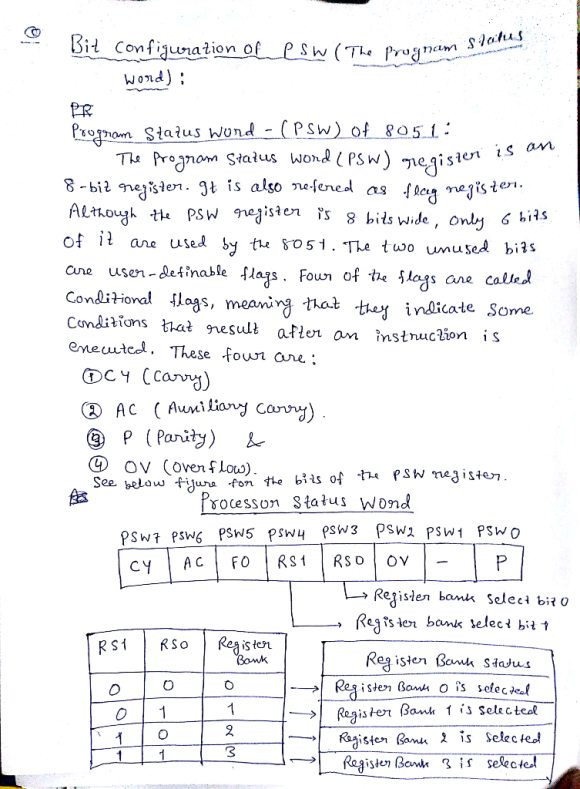 Bit Configuration of PSW (The Program Status
Word) :
PR
Program Status Word - (PSW) of 8051 :
The Program Status Word (PSW) register is an
8-bit register. It is also refered as flag register.
Although the PSW register is 8 bits wide, only 6 bits
of it are used by the 8051. The two unused bits
are user-definable flags. Four of the flags are called
Conditional flags, meaning that they indicate some
Conditions that result after an instruction is
executed. These four are :
① CY (Carry)
② AC (Auxiliary Carry).
③ P (Parity) &
④ OV (Overflow).
See below figure for the bits of the PSW register.
Processor Status Word
PSW7 PSW6 PSW5 PSW4 PSW3 PSW2 PSW1 PSW0
CY AC F0 RS1 RS0 OV - P
→ Register bank select bit 0
→ Register bank select bit 1
RS1 RS0 Register Bank Register Bank Status
0 0 0 → Register Bank 0 is selected
0 1 1 → Register Bank 1 is selected
1 0 2 → Register Bank 2 is selected
1 1 3 → Register Bank 3 is selected